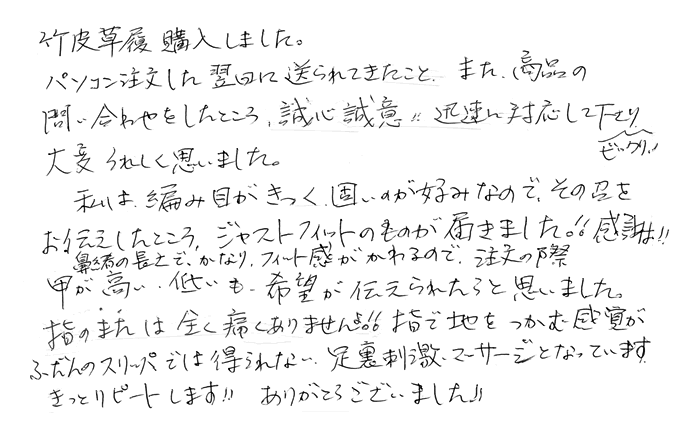 竹皮草履 購入しました。
パソコン注文した翌日に送られてきたこと、また、商品の
問い合わせをしたところ、誠心誠意!! 迅速に対応して下さり
ビックリ!
大変うれしく思いました。
私は、編み目がきつく、固いのが好みなので、その旨を
お伝えしたところ、ジャストフィットのものが届きました!! 感謝!!
鼻緒の長さで、かなり、フィット感がかわるので、注文の際
甲が高い・低いも、希望が伝えられたらと思いました。
指のまたは全く痛くありませんよ!! 指で地をつかむ感覚が
ふだんのスリッパでは得られない、足裏刺激、マッサージとなっています。
きっとリピートします!! ありがとうございました!!